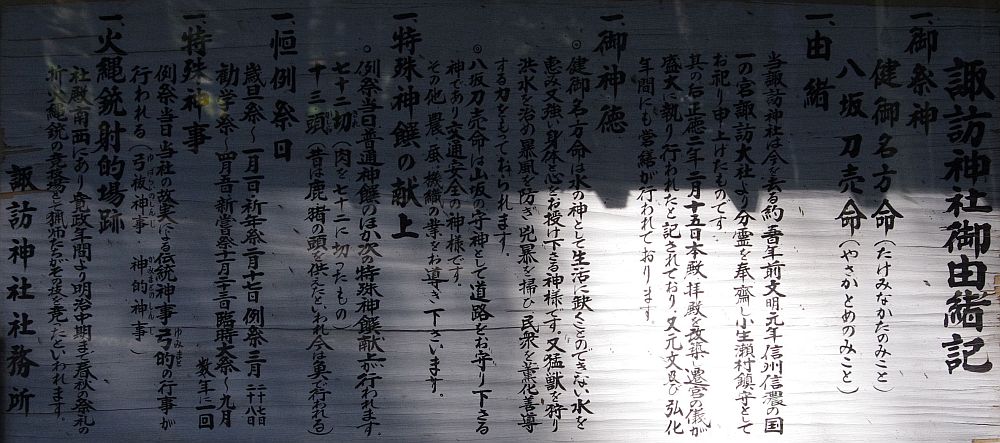 諏訪神社御由緒記
一、御祭神
健御名方命(たけみなかたのみこと)
八坂刀売命(やさかとめのみこと)
一、由緒
当諏訪神社は今を去る約五百年前文明元年信州信濃の国
一の宮諏訪大社より分霊を奉齋し小生瀬村鎮守として
お祀り申上げたものです。
其の后正徳二年二月十五日本殿、拝殿を改築し遷宮の儀が
盛大に執り行われたと記されており、又元文及び弘化
年間にも営繕が行われております。
一、御神徳
◎健御名方命は水の神として生活に欠くことのできない水を
恵み又強い身体心をお授け下さる神様です。又猛獣を狩り
洪水を治め暴風を防ぎ兇暴を掃ひ民衆を善化善導
する力をもっておられます。
◎八坂刀売命は山坂の守神として道路をお守り下さる
神であり交通安全の神様です。
その他、農、蚕、機織の業をお導き下さいます。
一、特殊神饌の献上
○例祭当日普通神饌のほか次の特殊神饌献上が行われます。
七十二切(肉を七十二に切ったもの)
十三頭(昔は鹿猪の頭を供えたといわれ今は魚で行われる)
一、恒例祭日
歳旦祭〜一月一日祈年祭二月十七日例祭三月二十七日二十八日
勧学祭〜四月 新嘗祭十一月二十三日臨時大祭〜九月数年に一回
一、特殊神事
例祭当日当社の故実による伝統神事弓的の行事が
行われる(弓祓神事・神的神事)
一、火縄銃射的場跡
社殿南西にあり寛政年間より明治中期まで春秋の祭礼の
折火縄銃の競技場として猟師たちがその技を競ったといわれます。
諏訪神社社務所